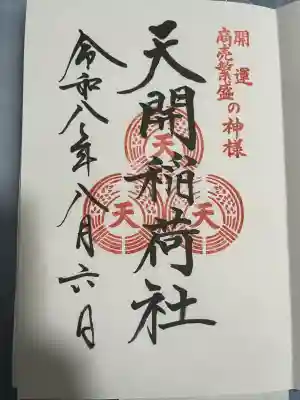 開運
商売繁盛の神様
天開稲荷社
天
天
天
令和八年八月六日